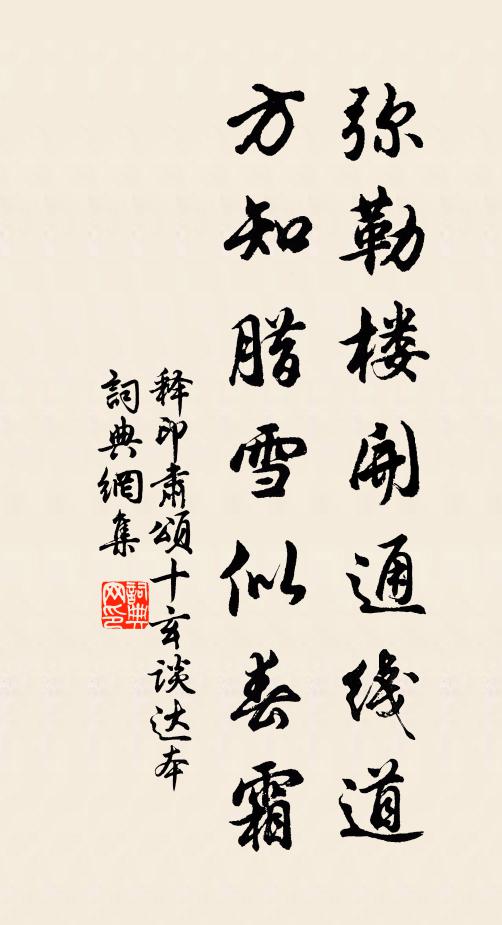 弥勒楼开通线道
方知腊雪似春霜
释印肃颂十玄谈达本
詞典網集
詞典网印